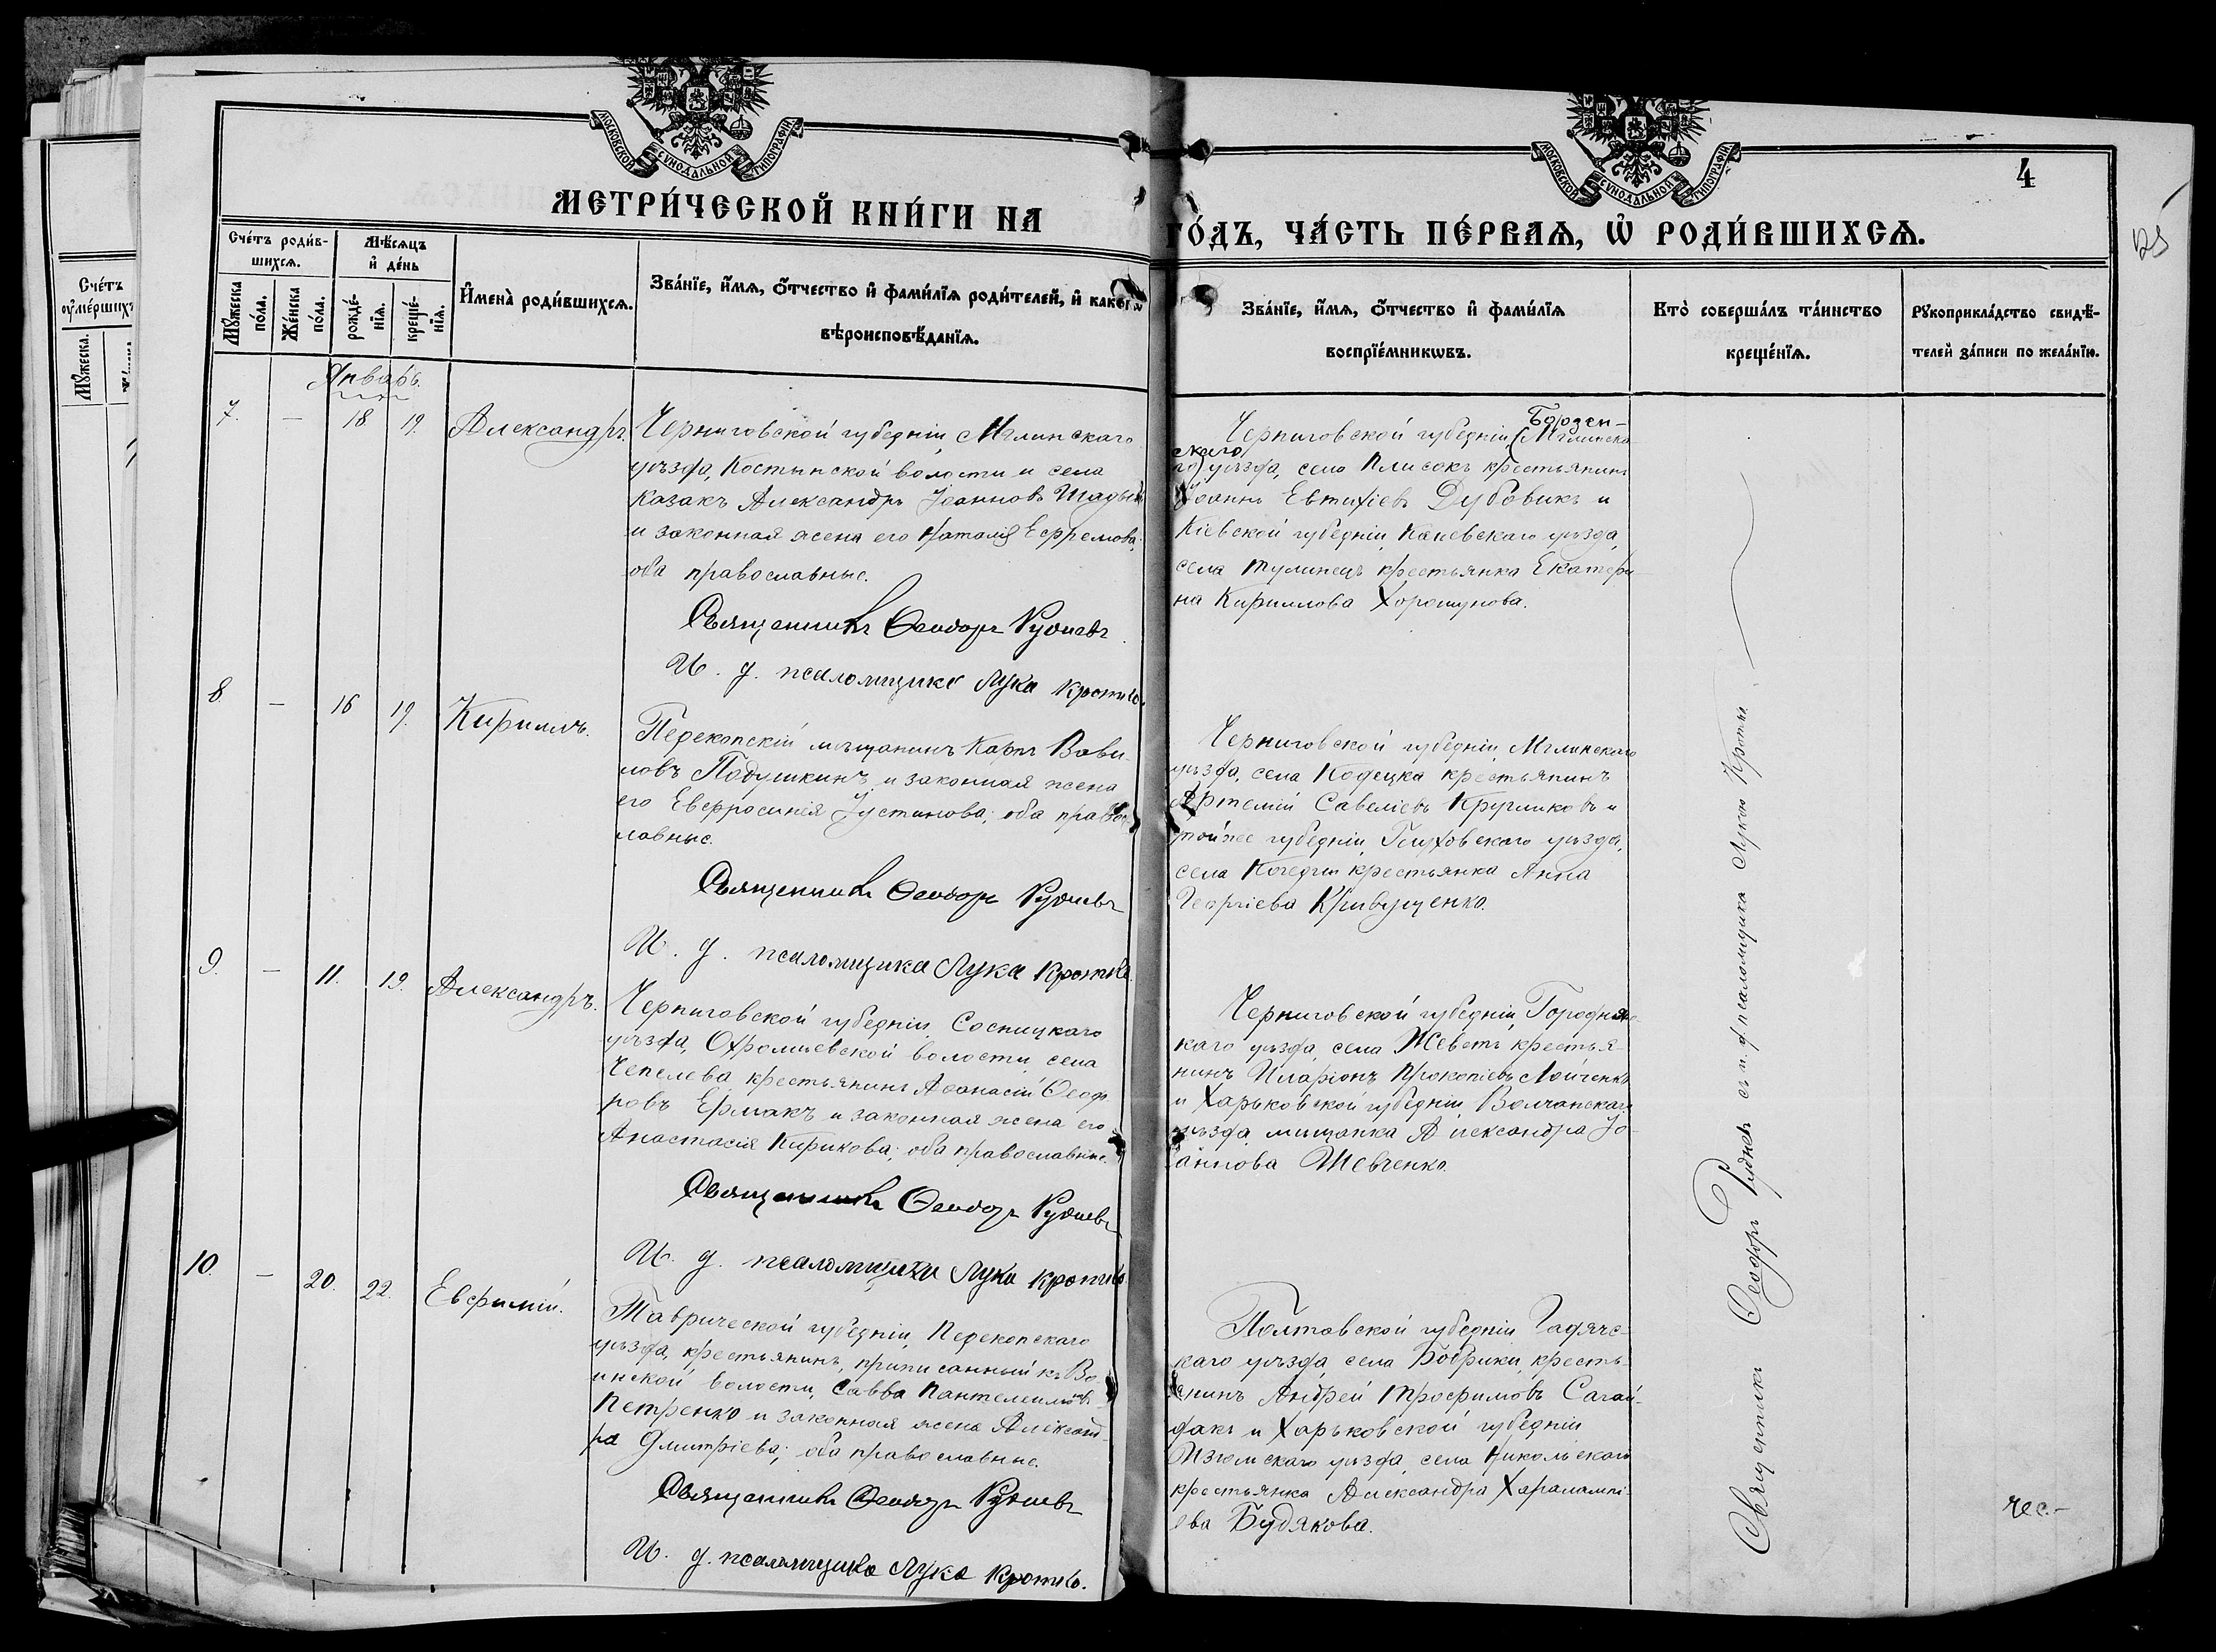 МОСКОВСКОЙ СѴНОДАЛЬНОЙ ТИПОГРАФІИ
МОСКОВСКОЙ СѴНОДАЛЬНОЙ ТИПОГРАФІИ
4
МЕТРИ́ЧЕСКОЙ КНИ́ГИ НА
ГО́ДЪ, ЧА́СТЬ ПЕ́РВАѦ, Ѡ҆ РОДИ́ВШИХСѦ.
Сче́тъ
ᲂу҆ме́ршихъ
Мꙋ́жеска.
Сче́тъ роди́в-
шихсѧ.
Мꙋ́жеска
по́ла.
Же́нска
по́ла.
Мѣ́сѧцъ
и҆ де́нь
рожде́-
нїѧ.
креще́-
нїѧ.
И҆мена̀ роди́вшихсѧ.
Зва́нїе, и҆́мѧ, ѻ҆́тчество и҆ фами́лїѧ роди́телей, и҆ како́гѡ
вѣроисповѣ́данїѧ.
Зва́нїе, и҆́мѧ, ѻ҆́тчество и҆ фами́лїѧ
воспрїе́мникѡвъ.
Кто̀ соверша́лъ та́инство
креще́нїѧ.
Рꙋкоприкла́дство свидѣ́-
телей за́писи по жела́нїю.
Январь.
7. — 18 19. Александръ.
Черниговской губерніи, Мглинскаго
уѣзда, Костынской волости и села
казакъ Александръ Іоанновъ
и законная жена его Наталія Ефремова;
оба православные.
Священникъ Ѳеодоръ Рудневъ
И. д. псаломщика Лука Кротко.
Борзен-
Черниговской губерніи, (Мглинска-
скаго
го) уѣзда, села Плисокъ крестьянинъ
Іоаннъ Евтихіевъ Дубовикъ и
Кіевской губерніи, Каневскаго уѣзда,
села Тулинецъ крестьянка Екатери-
на Кириллова Хорошунова.
8. — 16 19. Кириллъ.
Перекопскій мѣщанинъ Карпъ Вави-
ловъ Подушкинъ и законная жена
его Евфросинія Іустинова; оба правос-
лавные.
Священникъ Ѳеодоръ Рудневъ
И. д. псаломщика Лука Кротко.
Черниговской губерніи, Мглинскаго
уѣзда, села Кодецка крестьянинъ
Артемій Савеліевъ Кругликовъ и
той же губерніи, Глуховскаго уѣзда,
села крестьянка Анна
Георгіева Кривущенко.
9. — 11. 19. Александръ.
Черниговской губерніи, Сосницкаго
уѣзда, Охромиевской волости, села
Чепелева крестьянинъ Аѳанасій Ѳеодо-
ровъ Ермакъ и законная жена его
Анастасія Кирикова; оба православные.
Священникъ Ѳеодоръ Рудневъ
И. д. псаломщика Лука Кротко.
Черниговской губерніи, Городниц-
каго уѣзда, села крестья-
нинъ Иларіонъ Прокопіевъ Лойченко
и Харьковской губерніи, Волчанскаго
уѣзда мѣщанка Александра Іо-
аннова Шевченко.
10. — 20. 22. Евфимій.
Таврической губерніи, Перекопскаго
уѣзда, крестьянинъ, приписанный къ Во-
инской волости, Савва Пантелеимовъ
Петренко и законная жена Александ-
ра Дмитріева; оба православные.
Священникъ Ѳеодоръ Рудневъ
И. д. псаломщика Лука Кротко.
Полтавской губерніи, Гадячс-
каго уѣзда, села Бобрики, кресть-
янинъ Андрей Трофимовъ Сагай-
дакъ и Харьковской губерніи
Изюмскаго уѣзда, села Никольскаго
крестьянка Александра Харалампі-
ева Будякова.
Священникъ Ѳеодоръ Рудневъ съ и. д. псаломщика Лукою Кротко.